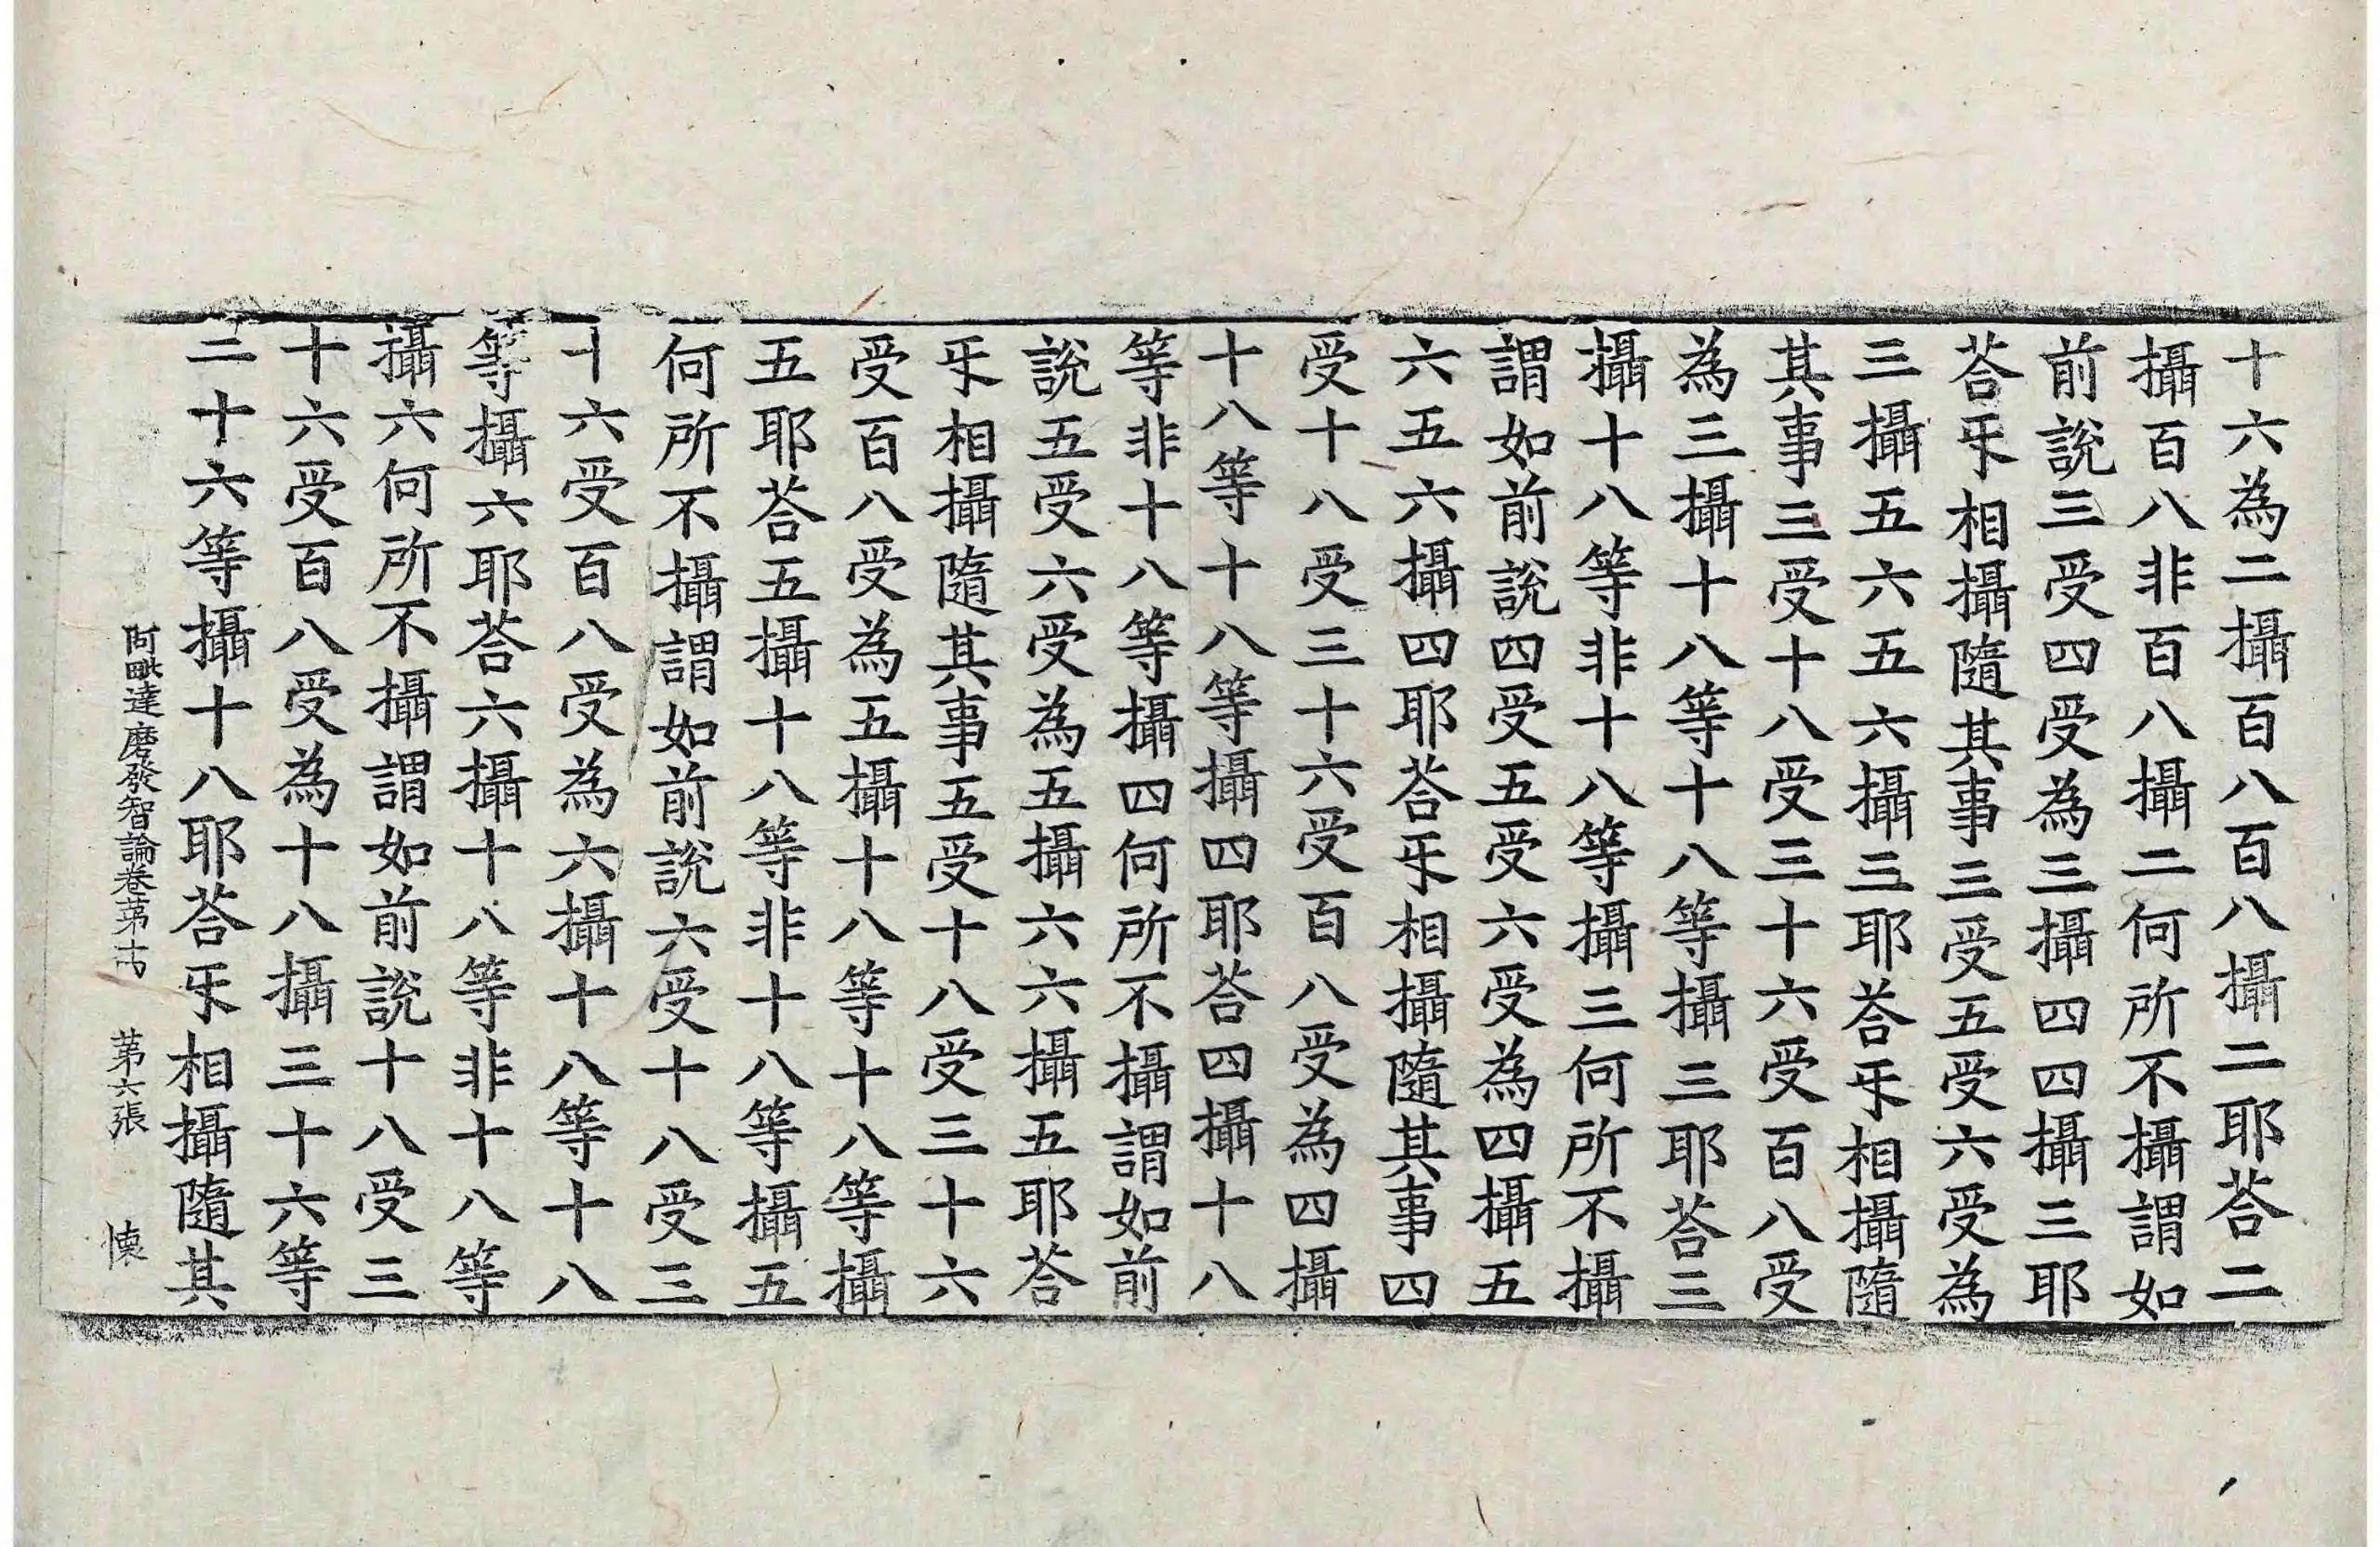 十六為二攝百八百八攝二耶荅二
攝百八非百八攝二何所不攝謂如
前說三受四受為三攝四四攝三耶
荅㸦相攝隨其事三受五受六受為
三攝五六五六攝三耶荅㸦相攝隨
其事三受十八受三十六受百八受
為三攝十八等十八等攝三耶荅三
攝十八等非十八等攝三何所不攝
謂如前說四受五受六受為四攝五
六五六攝四耶荅㸦相攝隨其事四
受十八受三十六受百八受為四攝
十八等十八等攝四耶荅四攝十八
等非十八等攝四何所不攝謂如前
說五受六受為五攝六六攝五耶荅
㸦相攝隨其事五受十八受三十六
受百八受為五攝十八等十八等攝
五耶荅五攝十八等非十八等攝五
何所不攝謂如前說六受十八受三
十六受百八受為六攝十八等十八
等攝六耶荅六攝十八等非十八等
攝六何所不攝謂如前說十八受三
十六受百八受為十八攝三十六等
三十六等攝十八耶荅㸦相攝隨其
阿毗達磨發智論卷苐十四 苐六張 懐